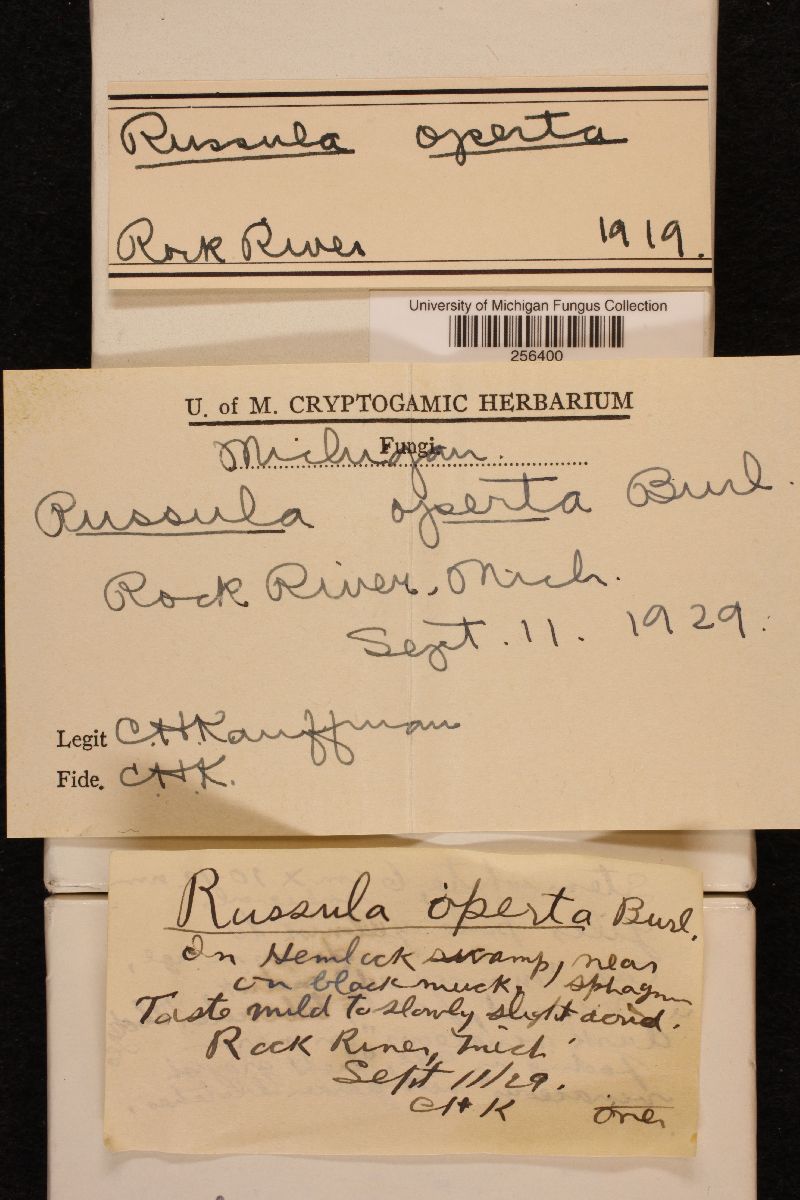 Russula operta
Rock River 1919.
University of Michigan Fungus Collection
256400
U. of M. CRYPTOGAMIC HERBARIUM
Fungi
Michigan.
Russula operta Burl.
Rock River, Mich.
Sept. 11. 1929.
Legit C.H. Kauffman
Fide. C.H.K.
Russula operta Burl.
In Hemlock swamp, near
on black muck, sphagnum
Taste mild to slowly slight acrid.
Rock River, Mich.
Sept 11/29.
CHK over